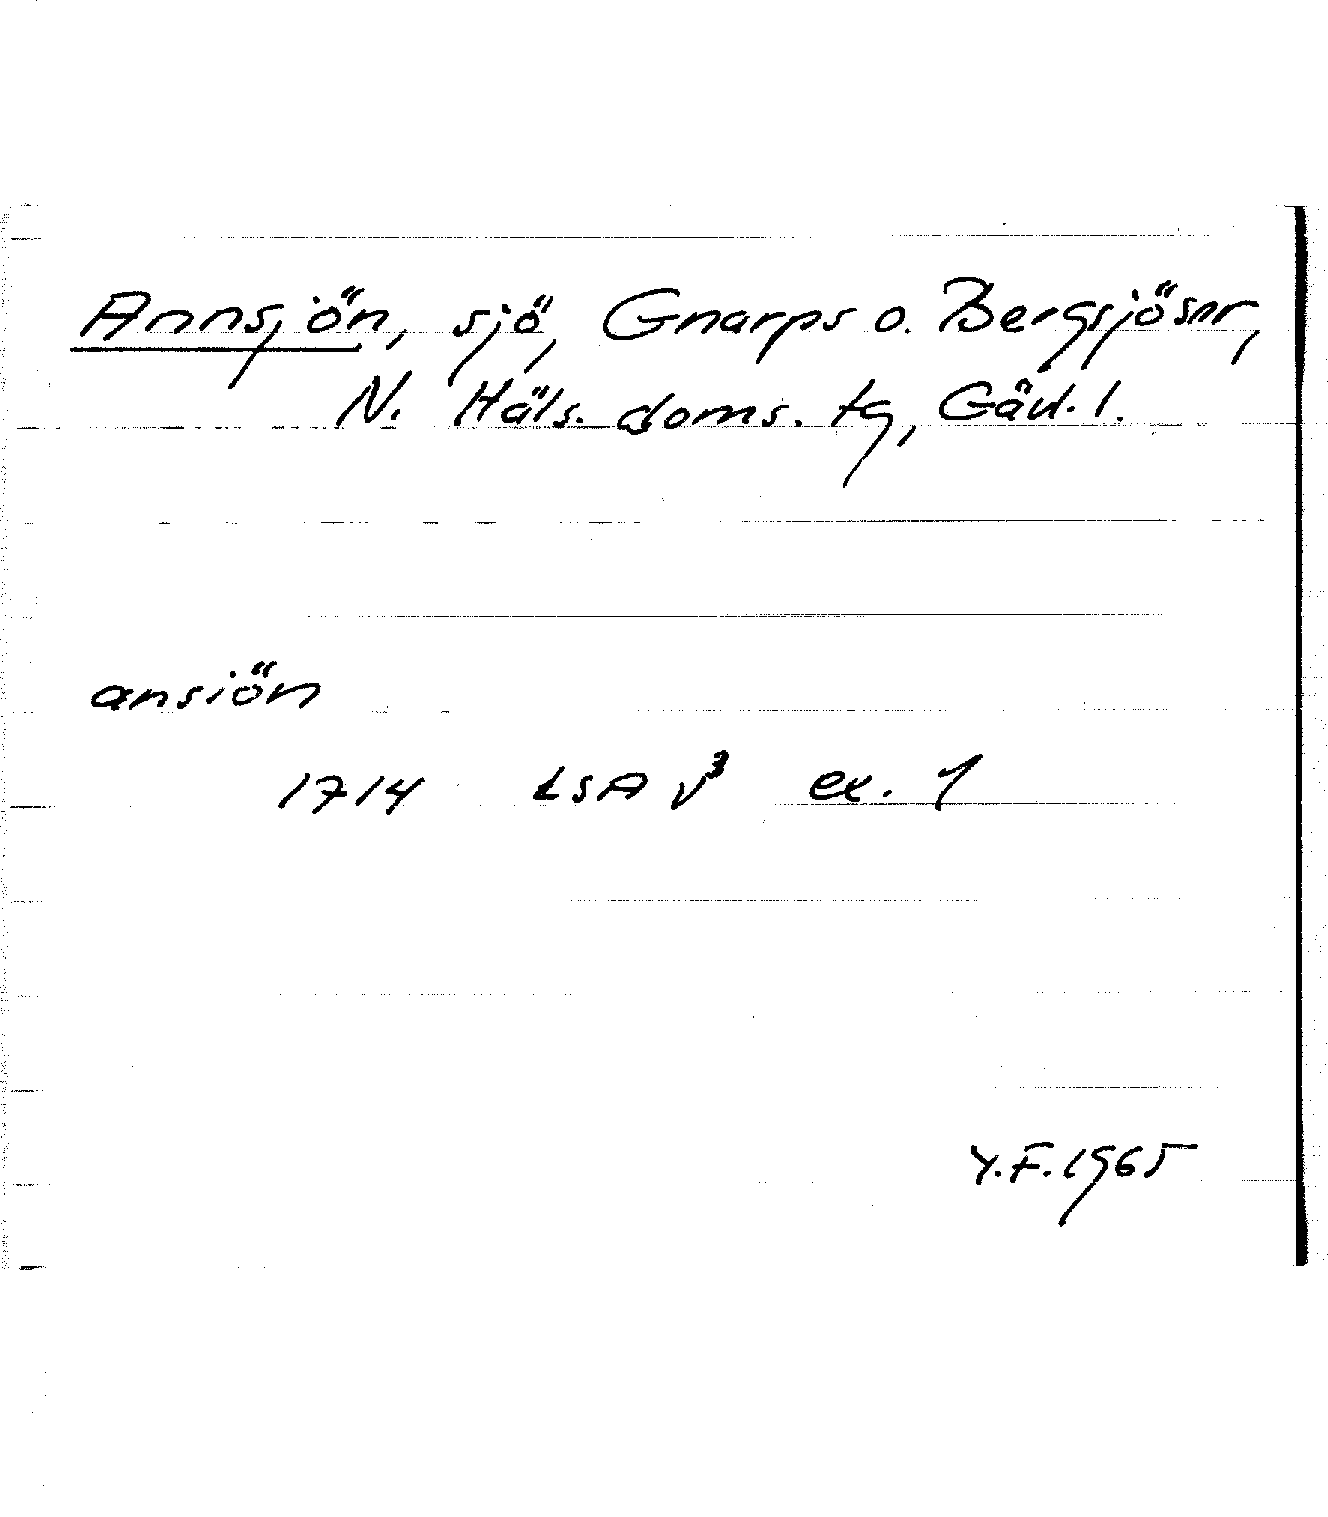 Annsjön, sjö, Gnarps o. Bergsjö snr,
N. Häls. doms. tg, Gävl. l.
ansiön
1714 LSA V³ ex. 1
Y.F. 1965